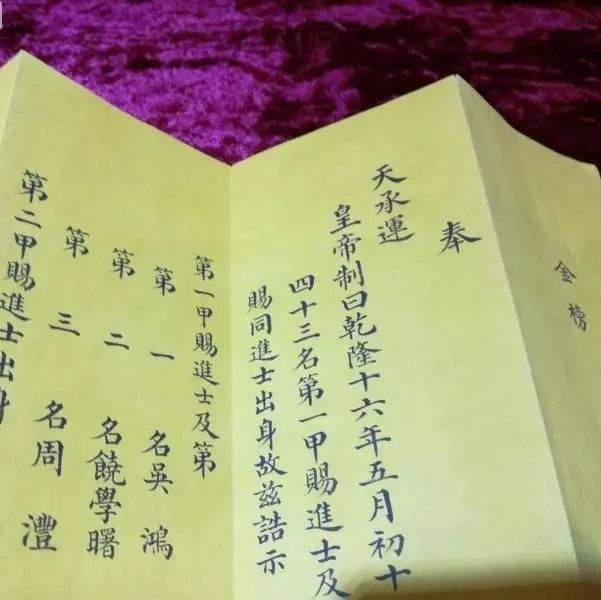 金榜
奉
天承運
皇帝制曰乾隆十六年五月初十
四十三名第一甲賜進士及
賜同進士出身故兹誥示
第一甲賜進士及第
第一名吳鴻
第二名饒學曙
第三名周灃
第二甲賜進士出身